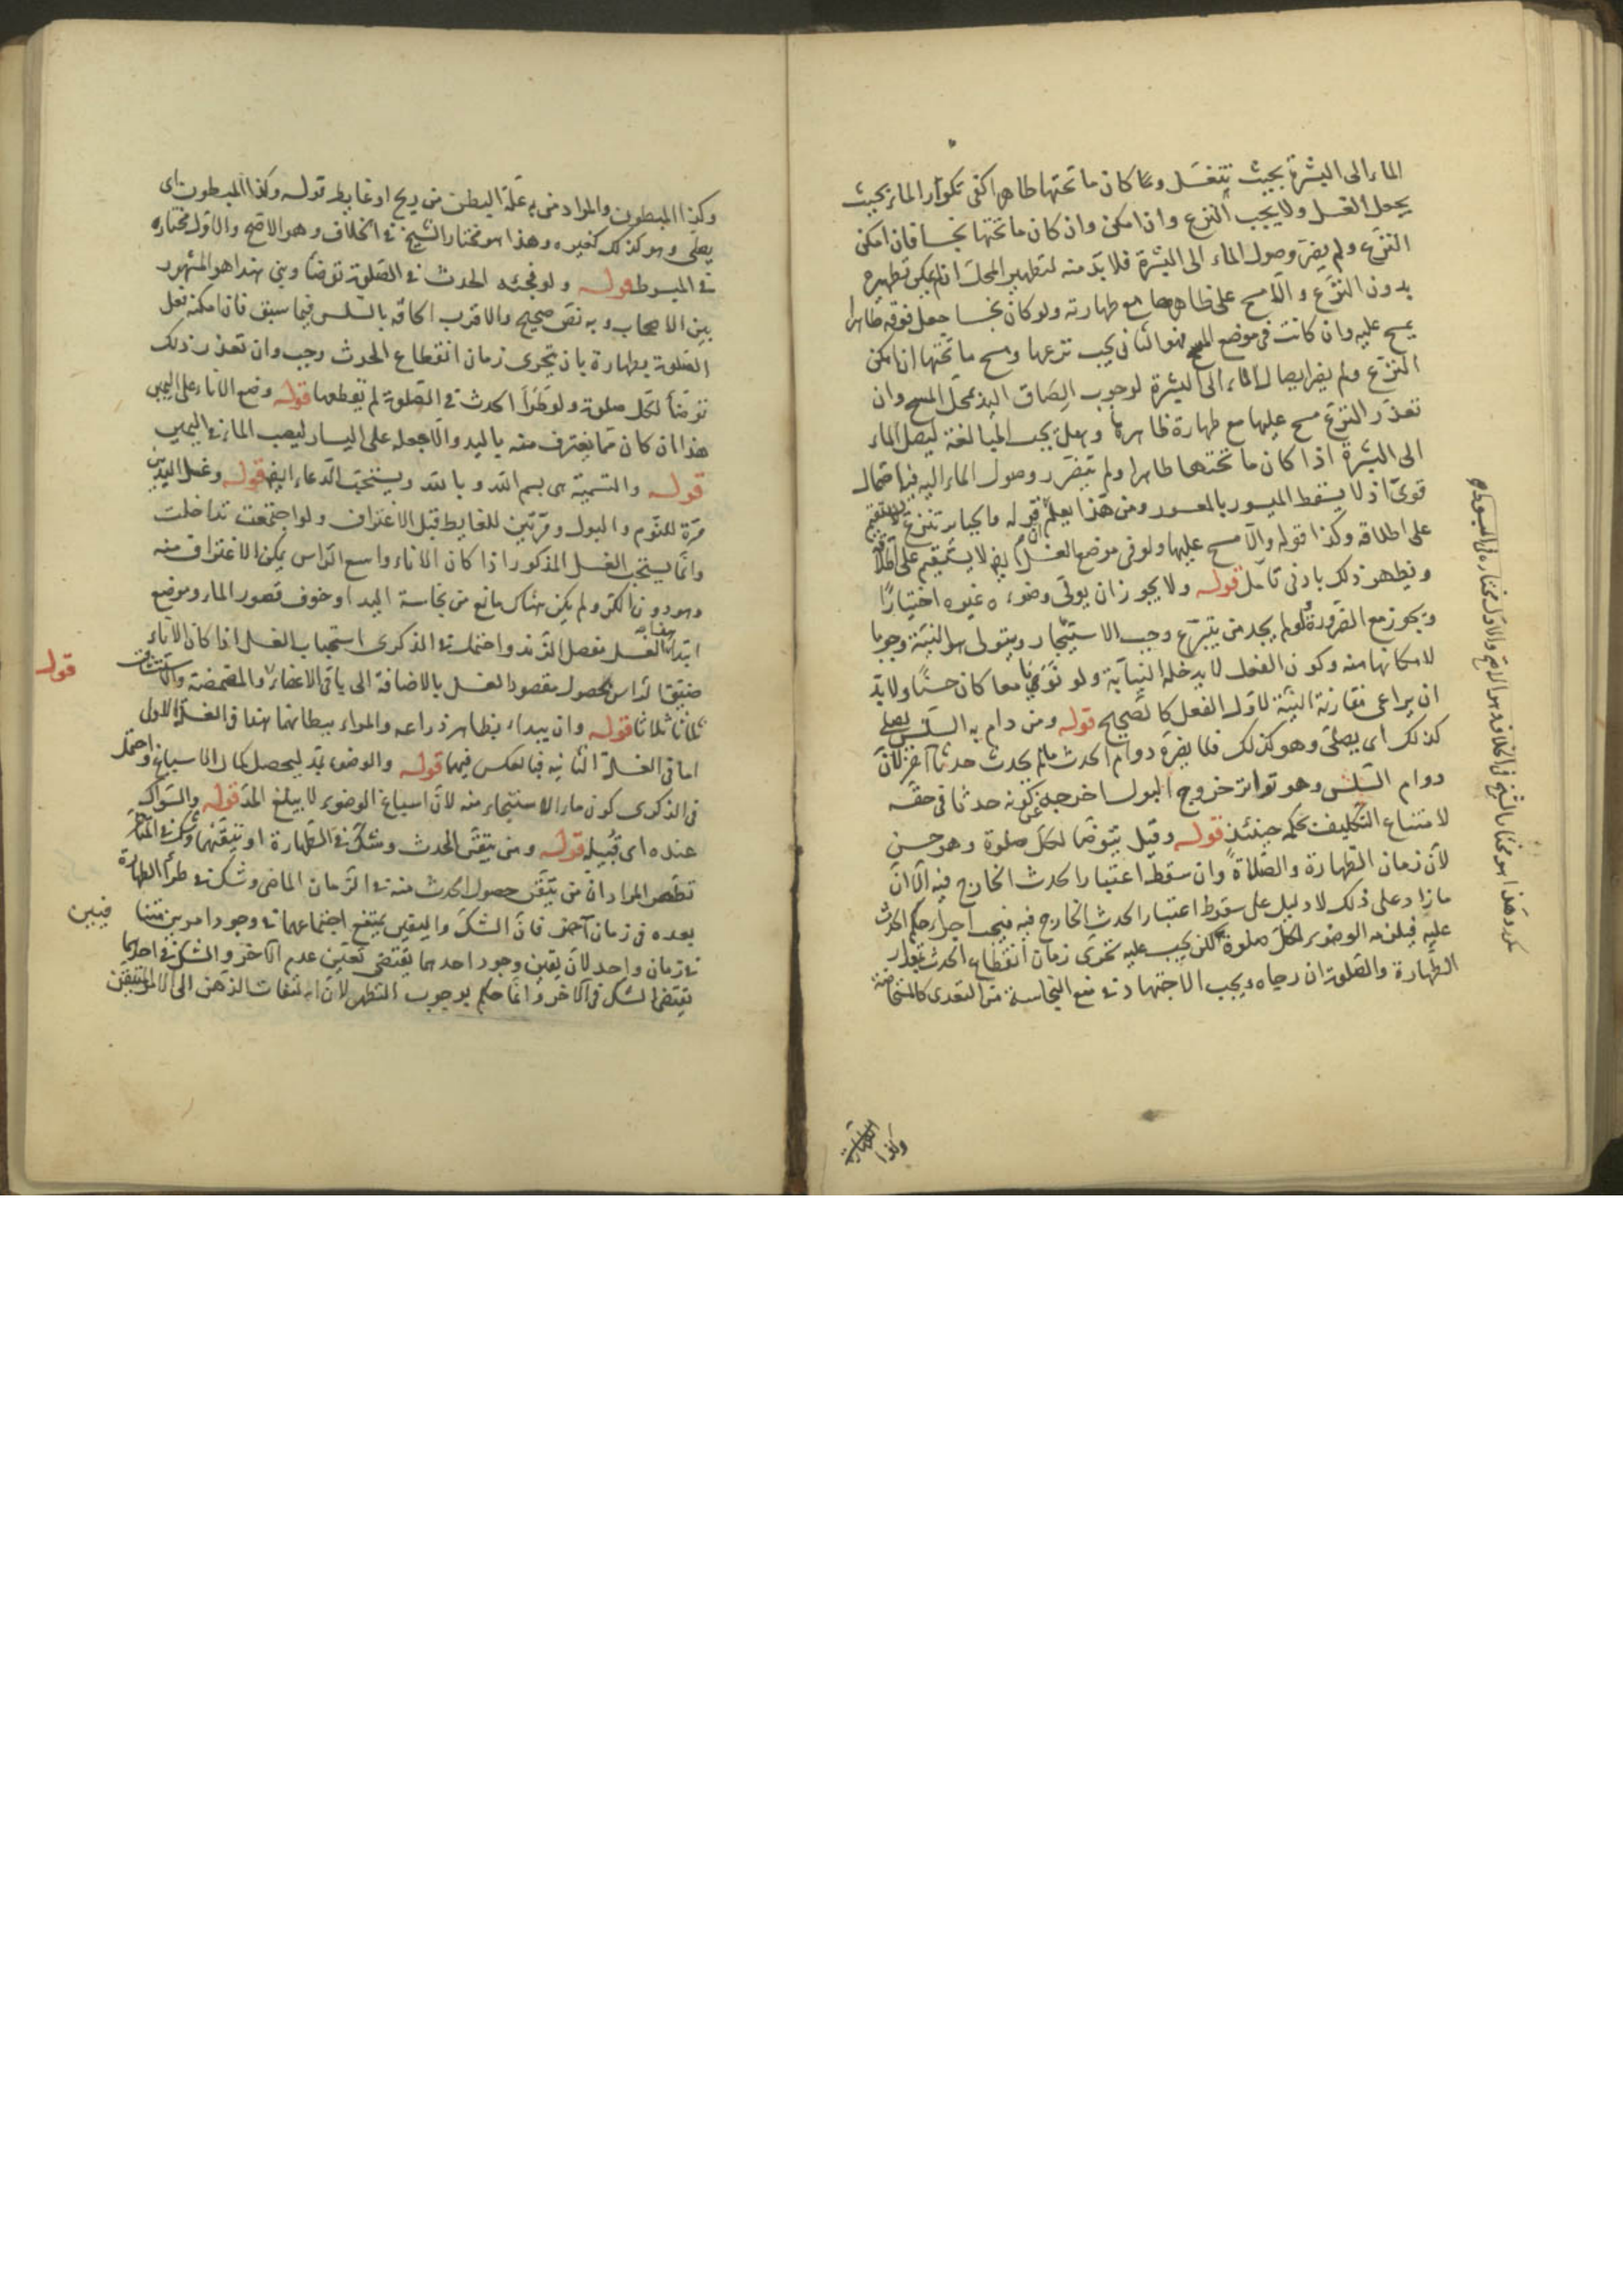 الماء الى البشرة بحيث تنغسل وما كان ما تحتها طاهرا كفى تكرار الماء بحيث
يحصل الغسل ولا يجب النزع وان امكن وان كان ما تحتها نجسا فان امكن
النزع ولم يضر وصول الماء الى البشرة فلا بد منه لتطهير المحل ان لم يمكن تطهيره
بدون النزع والا مسح على ظاهرها مع طهارته ولو كان نجسا جعل فوقه طاهرا
يمسح عليه وان كانت في موضع المسح فهو الثاني يجب نزعها ومسح ما تحتها ان امكن
النزع ولم يضر ايصال الماء الى البشرة لوجوب الصاق اليد بمحل المسح وان
تعذر النزع مسح عليها مع طهارة ظاهرها وهل يجب المبالغة ليصل الماء
الى البشرة اذا كان ما تحتها طاهرا ولم يتضرر وصول الماء اليه فيه احتمال
قوى اذ لا يسقط الميسور بالمعسور ومن هذا يعلم ان قوله والجبائر تنزع لا يستقيم
على اطلاقه وكذا قوله والا مسح عليها ولو في موضع الغسل ايضا لا يستقيم على اطلاقه
ويظهر ذلك بادنى تامل قوله ولا يجوز ان يولى وضوءه غيره اختيارا
ويجوز مع الضرورة ولو لم يجد من يتبرع وجب الاستيجار ويتولى هو النية وجوبا
لامكانها منه وكون الفعل لا يدخله النيابة ولو نويا معا كان حسنا ولا بد
ان يراعى مقارنة النية لاول الفعل كالصحيح قوله ومن دام به السلس يصلى
كذلك اى يصلى وهو كذلك فلا يضره دوام الحدث ما لم يحدث حدثا آخر لان
دوام السلس وهو تواتر خروج البول اخرجه عن كونه حدثا في حقه
لامتناع التكليف بحكمه حينئذ قوله وقيل يتوضأ لكل صلوة وهو حسن
لان زمان الطهارة والصلاة وان سقط اعتبار الحدث الخارج فيه الا ان
ما زاد على ذلك لا دليل على سقوط اعتبار الحدث الخارج فيه فيجب اجراء حكم الحدث
عليه فيلزمه الوضوء لكل صلوة لكن يجب عليه تحرى زمان انقطاع الحدث بمقدار
الطهارة والصلوة ان رجاه ويجب الاجتهاد في منع النجاسة من التعدى كالمستحاضة
وكذا
وكذا المبطون والمراد من به علة البطن من ريح او غايط قوله وكذا المبطون اى
يصلى وهو كذلك كغيره وهذا هو مختار الشيخ في الخلاف وهو الاصح والاول مختاره
في المبسوط قوله ولو فجئه الحدث في الصلوة توضأ وبنى هذا هو المشهور
بين الاصحاب وبه نص صحيح والاقرب الحاقه بالسلس فيما سبق فان امكنه فعل
الصلوة بطهارة بان يتحرى زمان انقطاع الحدث وجب وان تعذر ذلك
توضأ لكل صلوة ولو طرأ الحدث في الصلوة لم يقطعها قوله وضع الاناء على اليمين
هذا ان كان مما يغترف منه باليد والا جعله على اليسار ليصب الماء في اليمين
قوله والتسمية هى بسم الله وبالله ويستحب الدعاء ايضا قوله وغسل اليدين
مرة للنوم والبول ومرتين للغايط قبل الاغتراف ولو اجتمعت تداخلت
وانما يستحب الغسل المذكور اذا كان الاناء واسع الراس يمكن الاغتراف منه
وهو دون الكر ولم يكن هناك مانع من نجاسة اليد او خوف قصور الماء وموضع
ابتداء الغسل مفصل الزند واحتمل في الذكرى استحباب الغسل اذا كان الاناء
ضيق الراس لحصول مقصود الغسل بالاضافة الى باقى الاعضاء والمضمضة والاستنشاق
ثلاثا ثلاثا قوله وان يبداء بظاهر ذراعه والمراة بباطنهما هذا في الغسلة الاولى
اما في الغسلة الثانية فبالعكس فيهما قوله والوضوء بمد ليحصل كمال الاسباغ واحتمل
في الذكرى كون ماء الاستنجاء منه لان اسباغ الوضوء لا يبلغ المد قوله والسواك
عنده اى قبيله قوله ومن تيقن الحدث وشك في الطهارة او تيقنهما وشك في المتاخر
تطهر المراد ان من تيقن حصول الحدث منه في الزمان الماضى وشك في طرأ الطهارة
بعده في زمان آخر فان الشك واليقين يمتنع اجتماعهما في وجود امرين متنافيين
في زمان واحد لان يقين وجود احدهما يقتضى تعيين عدم الآخر والشك في احدهما
يقتضى الشك في الآخر وانما حكم بوجوب التطهر لان التفات الذهن الى الامر المتيقن
قوله